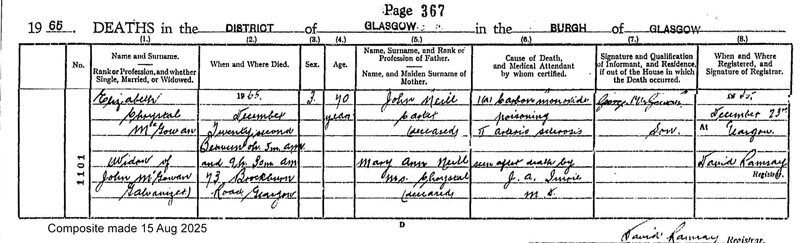 Page 367
1965. DEATHS in the DISTRICT of GLASGOW in the BURGH of GLASGOW
(1.) (2.) (3.) (4.) (5.) (6.) (7.) (8.)
No.
Name and Surname.
Rank or Profession, and whether
Single, Married, or Widowed.
When and Where Died.
Sex.
Age.
Name, Surname, and Rank or
Profession of Father.
Name, and Maiden Surname of
Mother.
Cause of Death,
and Medical Attendant
by whom certified.
Signature and Qualification
of Informant, and Residence,
if out of the House in which
the Death occurred.
When and Where
Registered, and
Signature of Registrar.
1101
Elizabeth
Chrystal
McGowan
Widow of
John McGowan
Galvanizer)
1965.
December
Twenty second
Between 0h. 5m. am
and 9h. 30m am
73 Brockburn
Road, Glasgow
70
years
John Neill
Carter
(deceased)
Mary Ann Neill
m.s. Chrystal
(deceased)
1(a) Carbon monoxide
poisoning
II arterio sclerosis
seen after death by
J. A. Imrie
M.D.
George McGowan
Son.
1965.
December 23rd
At Glasgow.
David Ramsay
Registrar.
D
Composite made 15 Aug 2025
David Ramsay Registrar.